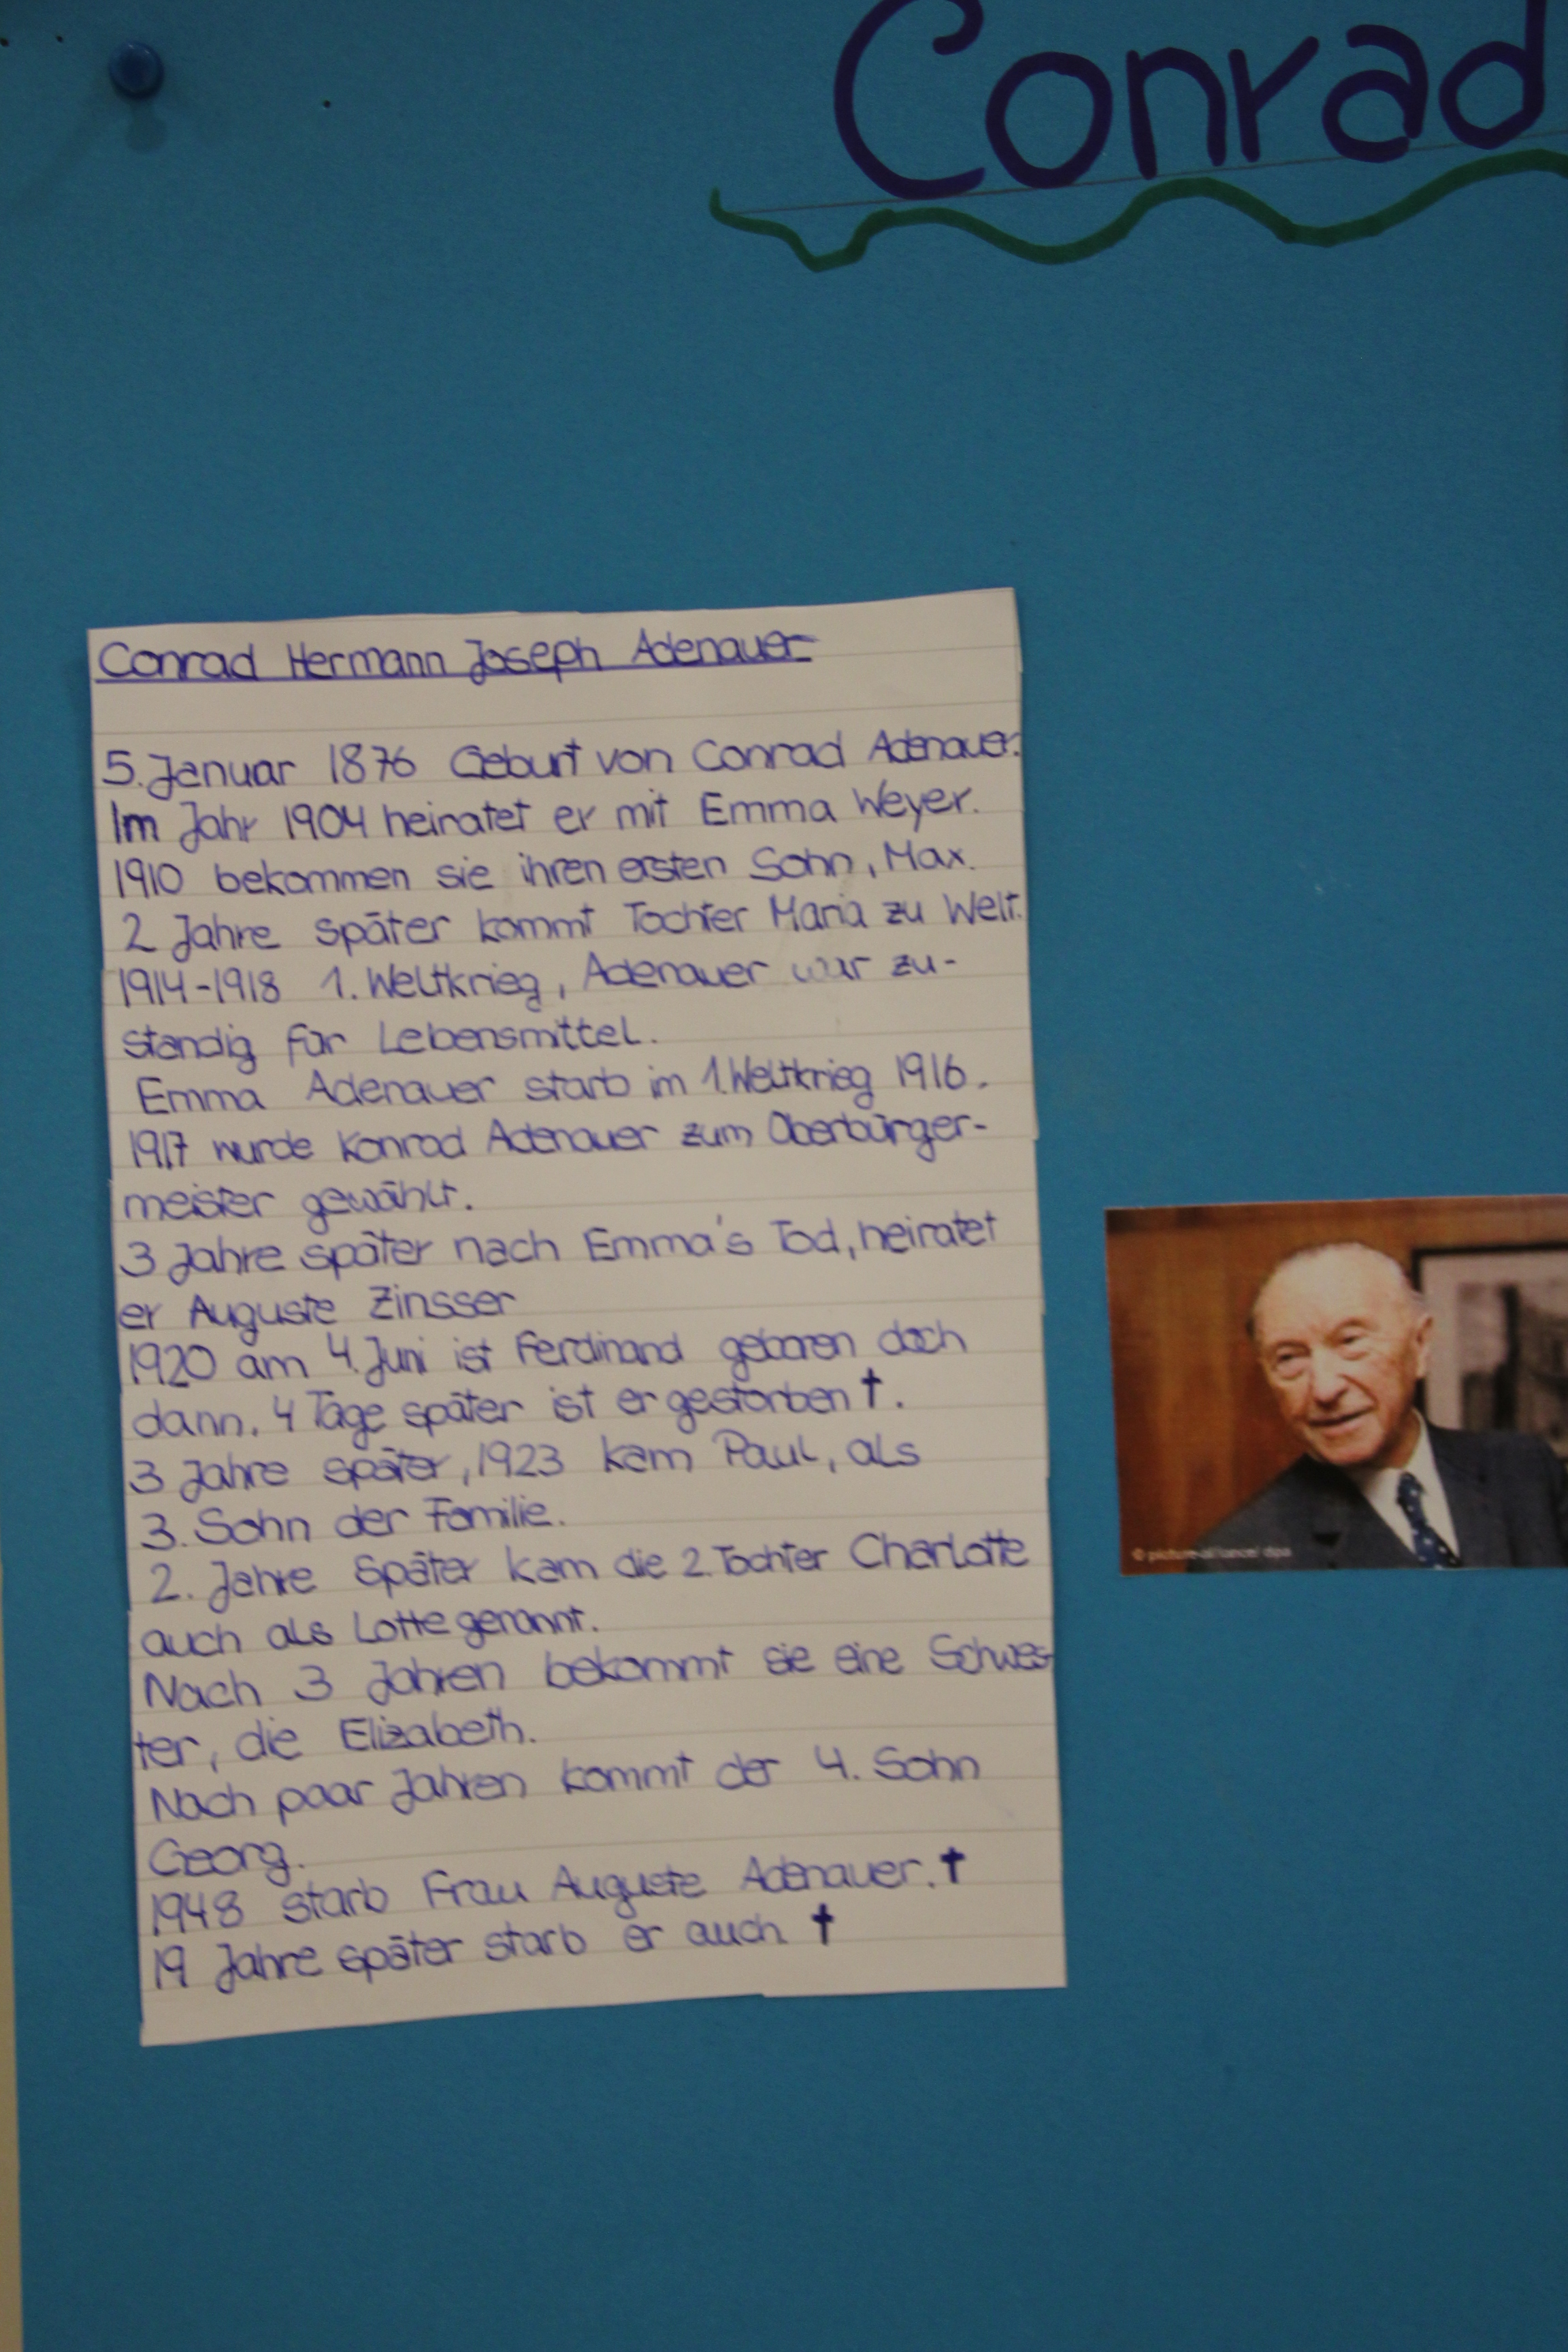 Conrad
Conrad Hermann Joseph Adenauer
5. Januar 1876 Geburt von Conrad Adenauer.
Im Jahr 1904 heiratet er mit Emma Weyer.
1910 bekommen sie ihren ersten Sohn, Max.
2 Jahre später kommt Tochter Maria zu Welt.
1914-1918 1. Weltkrieg, Adenauer war zu-
ständig für Lebensmittel.
Emma Adenauer starb im 1. Weltkrieg 1916.
1917 wurde Konrad Adenauer zum Oberbürger-
meister gewählt.
3 Jahre später nach Emma's Tod, heiratet
er Auguste Zinsser
1920 am 4. Juni ist Ferdinand geboren doch
dann. 4 Tage später ist er gestorben †.
3 Jahre später, 1923 kam Paul, als
3. Sohn der Familie.
2. Jahre später kam die 2. Tochter Charlotte
auch als Lotte genannt.
Nach 3 Jahren bekommt sie eine Schwes-
ter, die Elizabeth.
Nach paar Jahren kommt der 4. Sohn
Georg.
1948 starb Frau Auguste Adenauer. †
19 Jahre später starb er auch †
© picture-alliance/ dpa